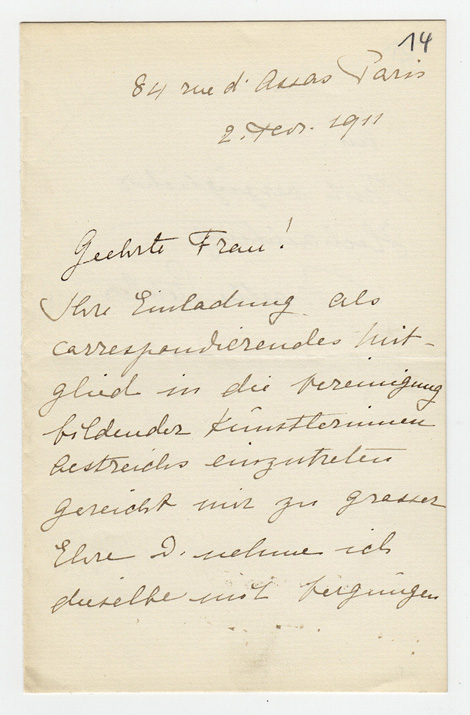 14
84 rue d'Assas Paris
2. Fevr. 1911
Geehrte Frau!
Ihre Einladung als
correspondierendes Mit-
glied in die Vereinigung
bildender Künstlerinnen
Oestreichs einzutreten
gereicht mir zu grosser
Ehre u. nehme ich
dieselbe mit Vergnügen